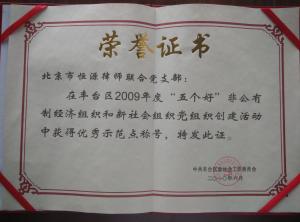 荣誉证书
北京市恒源律师联合党支部：
在丰台区2009年度“五个好”非公有
制经济组织和新社会组织党组织创建活动
中获得优秀示范点称号，特发此证。
二〇一〇年六月